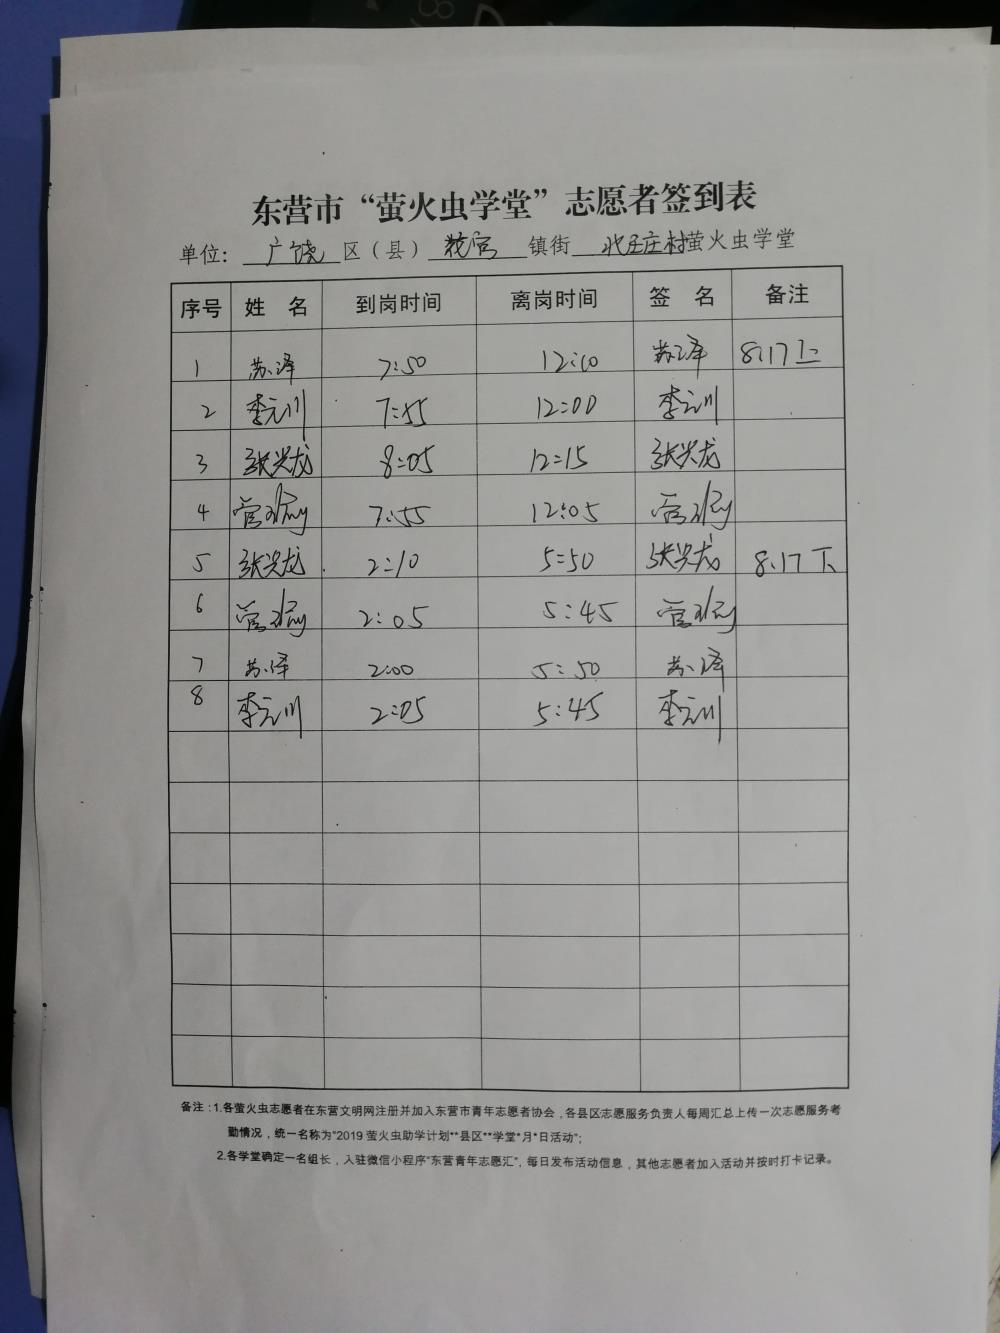 东营市“萤火虫学堂”志愿者签到表
单位: 广饶 区（县） 花官 镇街 北王庄村萤火虫学堂
序号 姓名 到岗时间 离岗时间 签名 备注
1 苏泽 7:50 12:10 苏泽 8.17上
2 李元川 7:55 12:00 李元川
3 张兴龙 8:05 12:15 张兴龙
4 管 7:55 12:05 管
5 张兴龙 2:10 5:50 张兴龙 8.17下
6 管 2:05 5:45 管
7 苏泽 2:00 5:50 苏泽
8 李元川 2:05 5:45 李元川
备注：1.各萤火虫志愿者在东营文明网注册并加入东营市青年志愿者协会，各县区志愿服务负责人每周汇总上传一次志愿服务考
勤情况，统一名称为“2019 萤火虫助学计划**县区**学堂*月*日活动”；
2.各学堂确定一名组长，入驻微信小程序“东营青年志愿汇”，每日发布活动信息，其他志愿者加入活动并按时打卡记录。